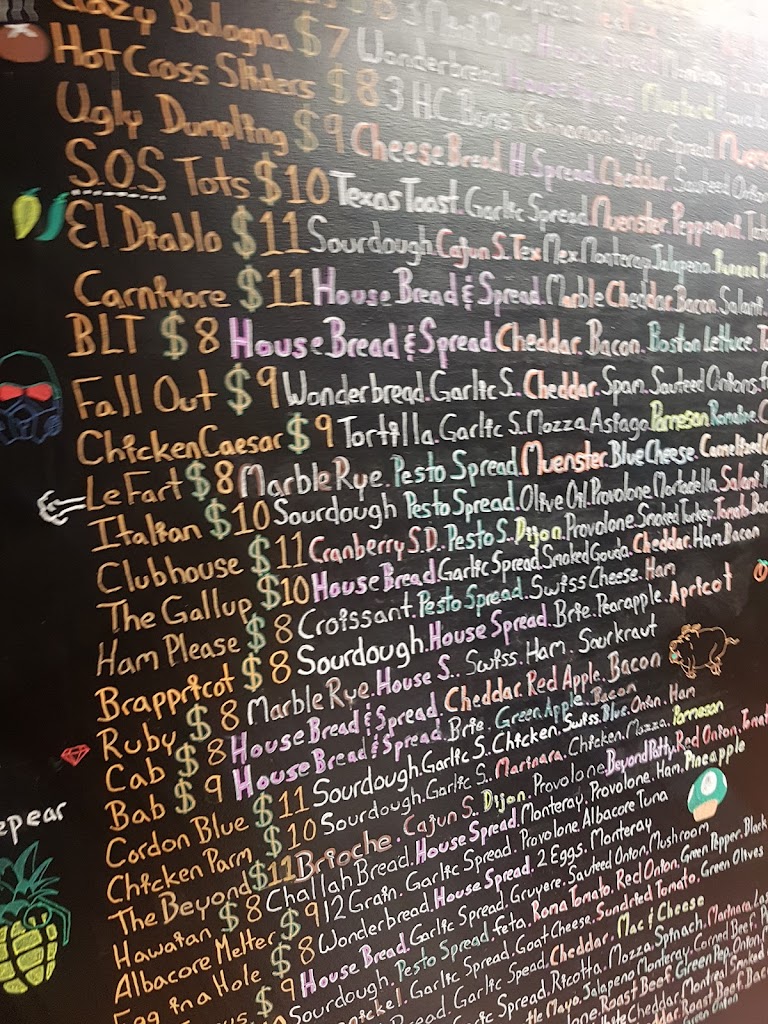 Crazy Bologna $7 Wonderbread House Spread
Hot Cross Sliders $8 3 HC Buns Cinnamon Sugar Spread
Ugly Dumpling $9 Cheese Bread. H. Spread. Cheddar. Sauteed Onion
S.O.S Tots $10 Texas Toast. Garlic Spread. Muenster. Pepperont.
El Diablo $11 Sourdough. Cajun S. Tex Mex. Monteray. Jalapeno. Banana
Carnivore $11 House Bread & Spread. Marble Cheddar. Bacon. Salami.
BLT $8 House Bread & Spread. Cheddar. Bacon. Boston Lettuce.
Fall Out $9 Wonderbread. Garlic S. Cheddar. Spam. Sauteed Onions.
Chicken Caesar $9 Tortilla. Garlic S. Mozza. Asiago. Parmesan. Romaine.
Le Fart $8 Marble Rye. Pesto Spread. Muenster. Blue Cheese. Carmelized
Italian $10 Sourdough Pesto Spread. Olive Oil. Provolone. Mortadella. Salami.
Clubhouse $11 Cranberry S.D. Pesto S. Dijon. Provolone. Smoked Turkey. Tomato.
The Gallup $10 House Bread Garlic Spread. Smoked Gouda. Cheddar. Ham. Bacon
Ham Please $8 Croissant. Pesto Spread. Swiss Cheese. Ham
Brappricot $8 Sourdough. House Spread. Brie. Pearapple. Apricot
Ruby $8 Marble Rye. House S.. Swiss. Ham. Sourkraut
Cab $8 House Bread & Spread. Cheddar. Red Apple. Bacon
Bab $9 House Bread & Spread. Brie. Green Apple. Bacon
Cordon Blue $11 Sourdough. Garlic S. Chicken. Swiss. Blue. Onion. Ham
Chicken Parm $10 Sourdough. Garlic S. Marinara. Chicken. Mozza. Parmesan
The Beyond $11 Brioche. Cajun S. Dijon. Provolone. Beyond Patty. Red Onion.
epear
Hawaiian $8 Challah Bread. House Spread. Monteray. Provolone. Ham. Pineapple
Albacore Melter $9 12 Grain. Garlic Spread. Provolone. Albacore Tuna
Egg in a Hole $8 Wonderbread. House Spread. 2 Eggs. Monteray
$9 House Bread. Garlic Spread. Gruyere. Sauteed Onion. Mushroom
Sourdough. Pesto Spread. feta. Roma Tomato. Red Onion. Green Pepper. Black
Garlic Spread. Goat Cheese. Sundried Tomato. Green Olives
Bread. Garlic Spead. Cheddar. Mac & Cheese
Garlic Spread. Ricotta. Mozza. Spinach. Marinara.
Mayo. Jalapeno Monteray. Corned Beef.
Roast Beef. Green Pep. Onion.
Cheddar. Montreal Smoked
Roast Beef.
Green Onion